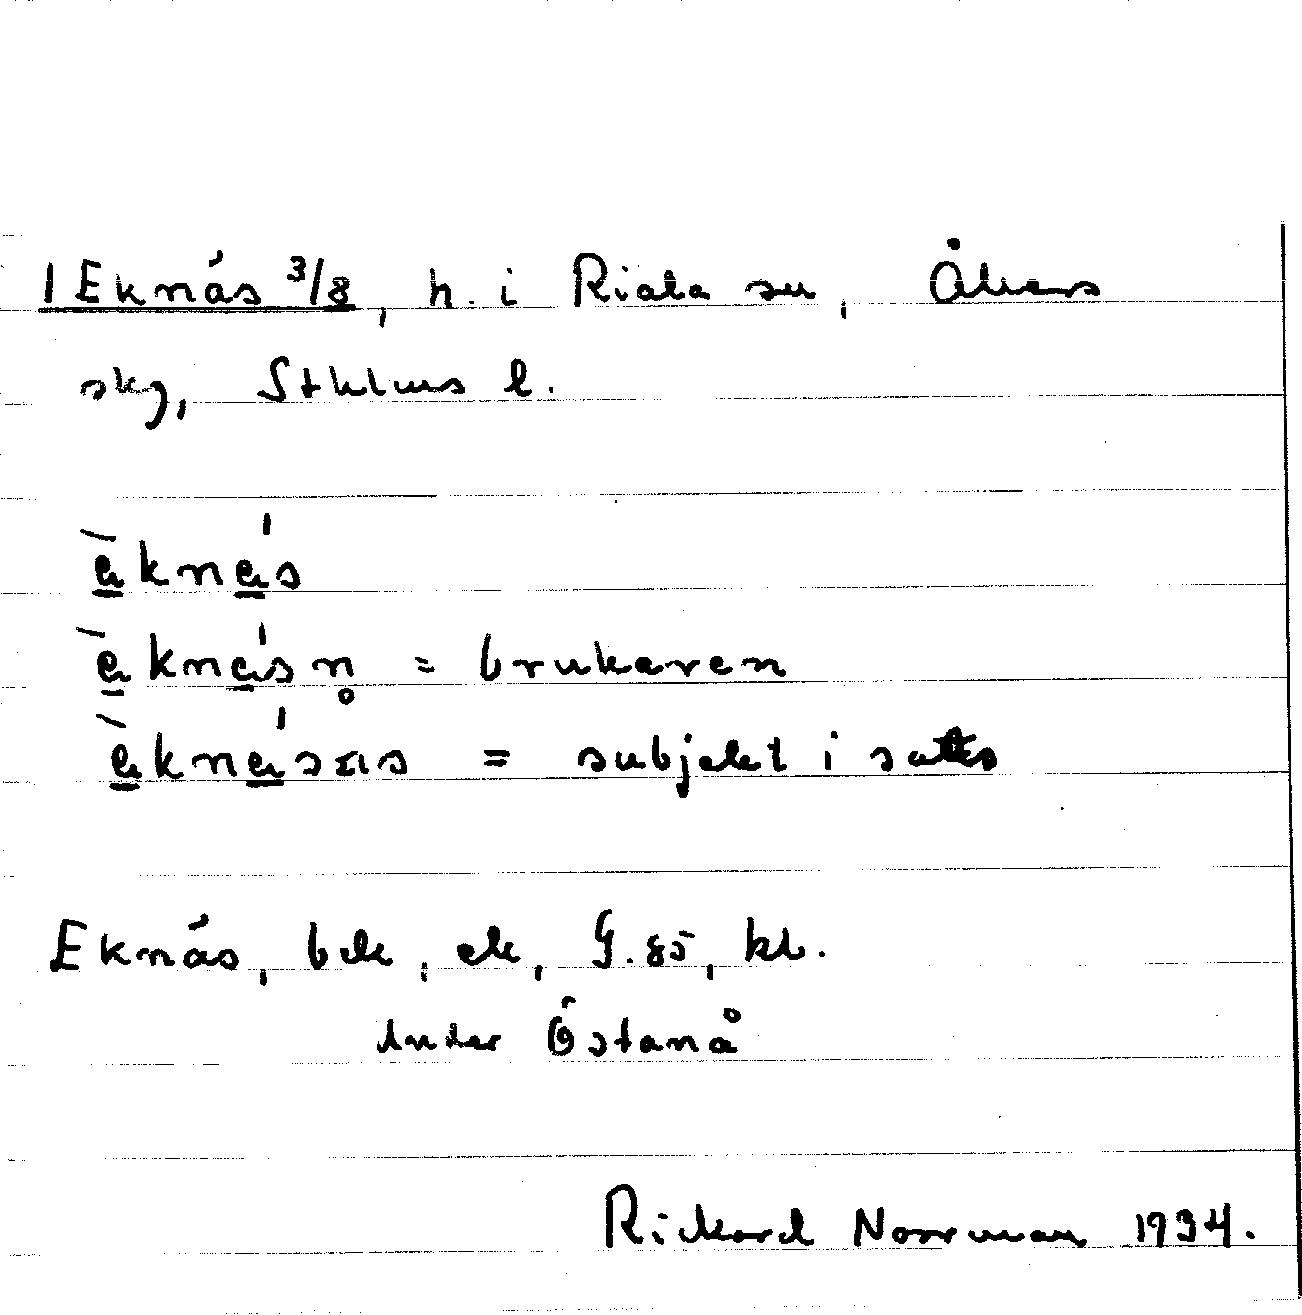 1 Eknäs 3/8, h. i Riala sn, Åkers
skg, Sthlms l.
èknás
èknásn̥ = brukaren
èknásas = subjekt i sats
Eknäs, bek, ek, G. 85, kb.
under Östanå
Rickard Norrman 1934.